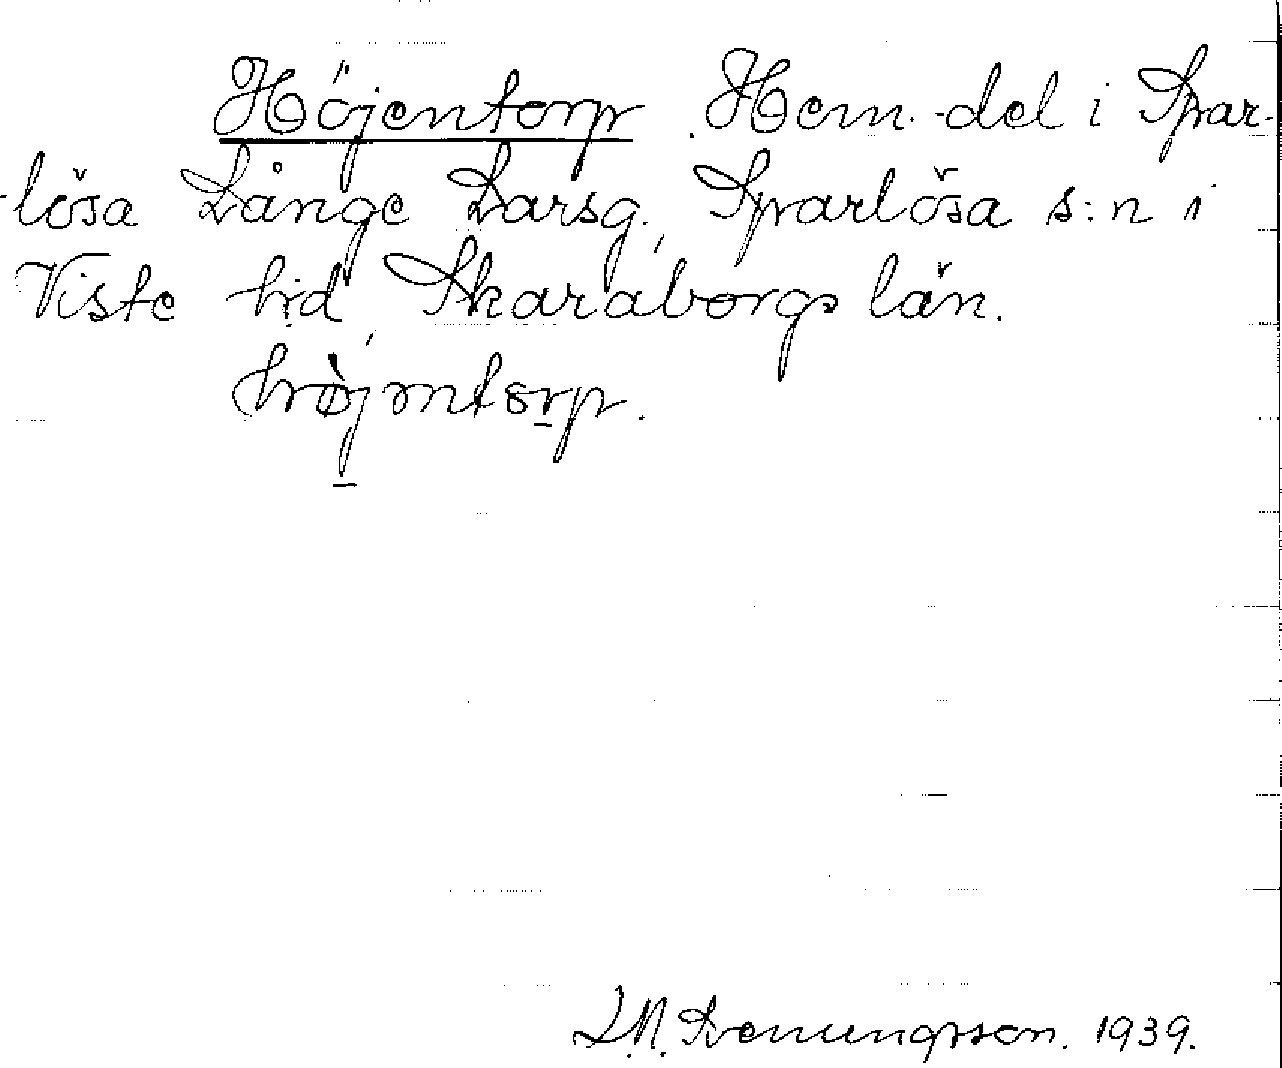 Höjentorp. Hem.-del i Spar-
lösa Långe Larsg. Sparlösa s:n i
Viste h:d, Skaraborgs län.
hröjmtorp.
L.N.
1939.